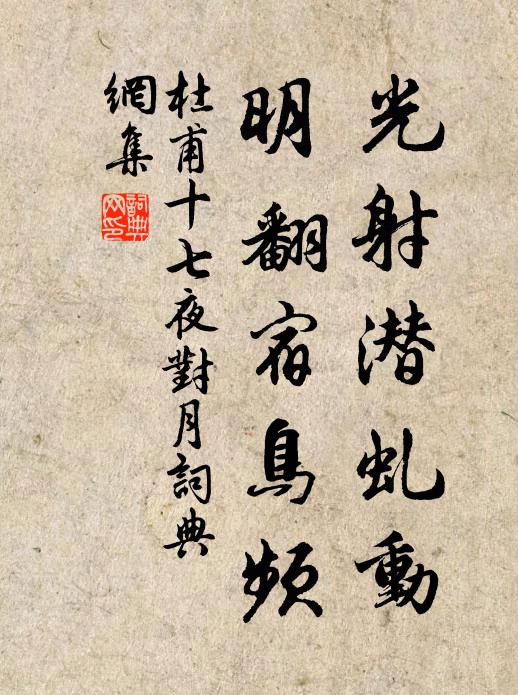 光射潜虬動
明翻宿鳥頻
杜甫十七夜對月詞典
網集
詞典
网印